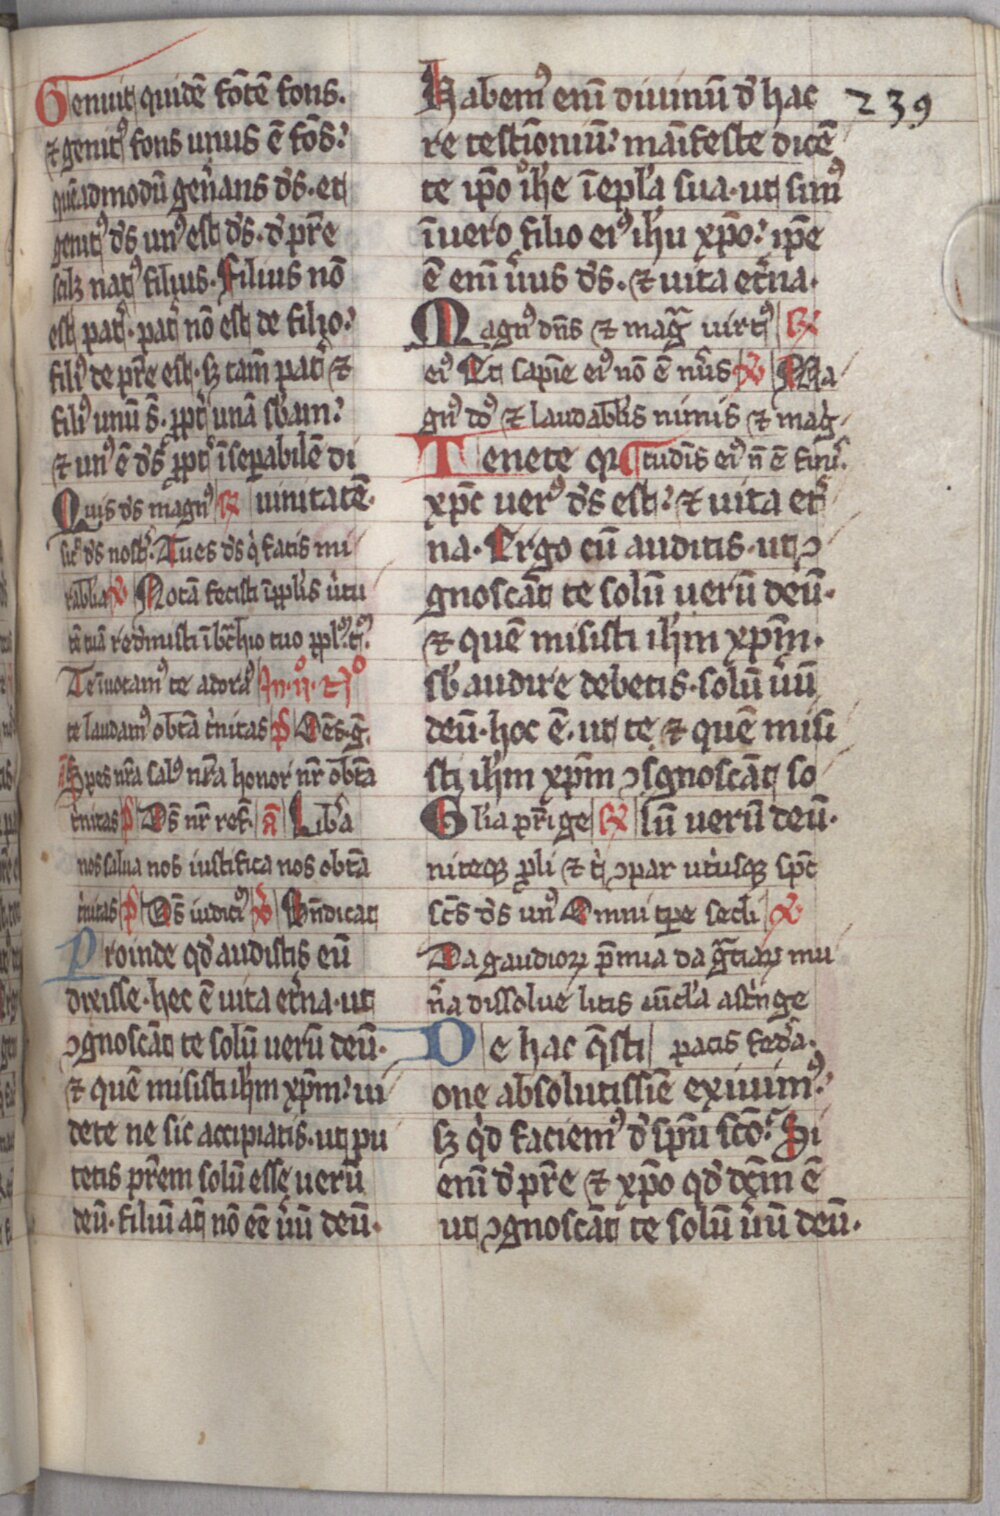 Genuit quidē fōtē fons.
⁊ genitꝰ fons unus ē fōs?
quēadmodū gen̄ans d̄s. et
genitꝰ d̄s unꝰ est d̄s. d̓ pr̄e
scilꝫ natꝰ filius. Filius nō
est pat̄. pat̄ nō est de filio?
filiꝰ de pr̄e est. sꝫ tam̄ pat̄ ⁊
filiꝰ unū s̄. ꝓpt̄ unā sb̄am?
⁊ unꝰ ē d̄s ꝓpt̄ īseꝑabilē di
uinitatē.
Quis d̄s magnꝰ
sic̄ d̄s nost̄. Tu es d̄s q̄ facis mi
rabilia ℣ Notā fecisti ī pp̄lis u̓tu
tē tuā redemisti ī bc̄hio tuo pp̄l̄ꝰ. t.
Te īuocamꝰ te adorāꝰ In. ij. no
te laudamꝰ o bt̄a t̓nitas p̄ D̄s. ḡ.
Spes nr̄a salꝰ nr̄a honor nr̄ o bt̄a
t̓nitas p̄ D̄s nr̄ ref. a Lib̄a
nos salua nos iustifica nos o bt̄a
t̓nitas p̄ D̄s iudiciꝰ ℣ Bn̄dicat
Proinde qd̄ audistis eū
dixisse. hec ē uita et̄na. ut
ꝯgnoscāt te solū uerū deū.
⁊ quē misisti ih̄m xp̄m? ui
dete ne sic accipiatis. ut pu
tetis pr̄em solū esse uerū
deū. filiū at̄ nō eē u̓ū deū.
Habemꝰ eni̅ diuinū d̓ hac
re testi̅oniū? mai̅feste dicē
te ip̄o ioh̄e i̅ epl̄a sua. ut simꝰ
i̅ uero filio eiꝰ ih̄u xp̄o? ip̄e
ē eni̅ u̓us d̄s. ⁊ uita et̄na.
Magnꝰ dn̄s ⁊ mag̅ uirtꝰ
eiꝰ Et sapīe eiꝰ nō ē nu̓s ℣ Ma
gnꝰ d̄s ⁊ laudabl̓is nimis ⁊ mag̅
tudīs eiꝰ n̄ ē finꝰ.
Tenete q̄
xp̄c uerꝰ d̄s est? ⁊ uita et̄
na. Ergo cū auditis. ut ꝯ
gnoscāt te solū uerū deū.
⁊ quē misisti ih̄m xp̄m.
sb̄ audire debetis. solū u̓ū
deū. hoc ē. ut te ⁊ quē misi
sti ih̄m xp̄m ꝯgnoscāt so
lū uerū deū.
Gl̓ia pr̓i ge
niteqꝫ ꝓli ⁊ t̓ ꝯpar ut̓usqꝫ sp̄c
sc̄s d̄s unꝰ Omni tꝑe secl̓i ℣
Da gaudioꝝ p̄mia da gr̄aꝝ mu
n̓a dissolue litis ui̅cl̓a ast̓nge
pacis fed̓a.
De hac q̄sti
one absolutissie̅ exiuimꝰ?
sꝫ q̓d faciemꝰ d̓ sp̄u scō? Si
eni̅ d̓ pr̄e ⁊ xp̄o qd̄ dc̄m ē
ut ꝯgnoscāt te solū u̓ū deū.
239